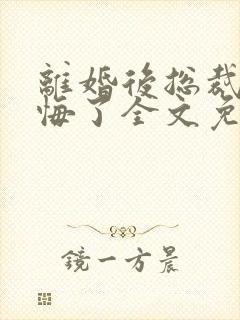 離婚後总裁
悔了全文免
鏡一方晨